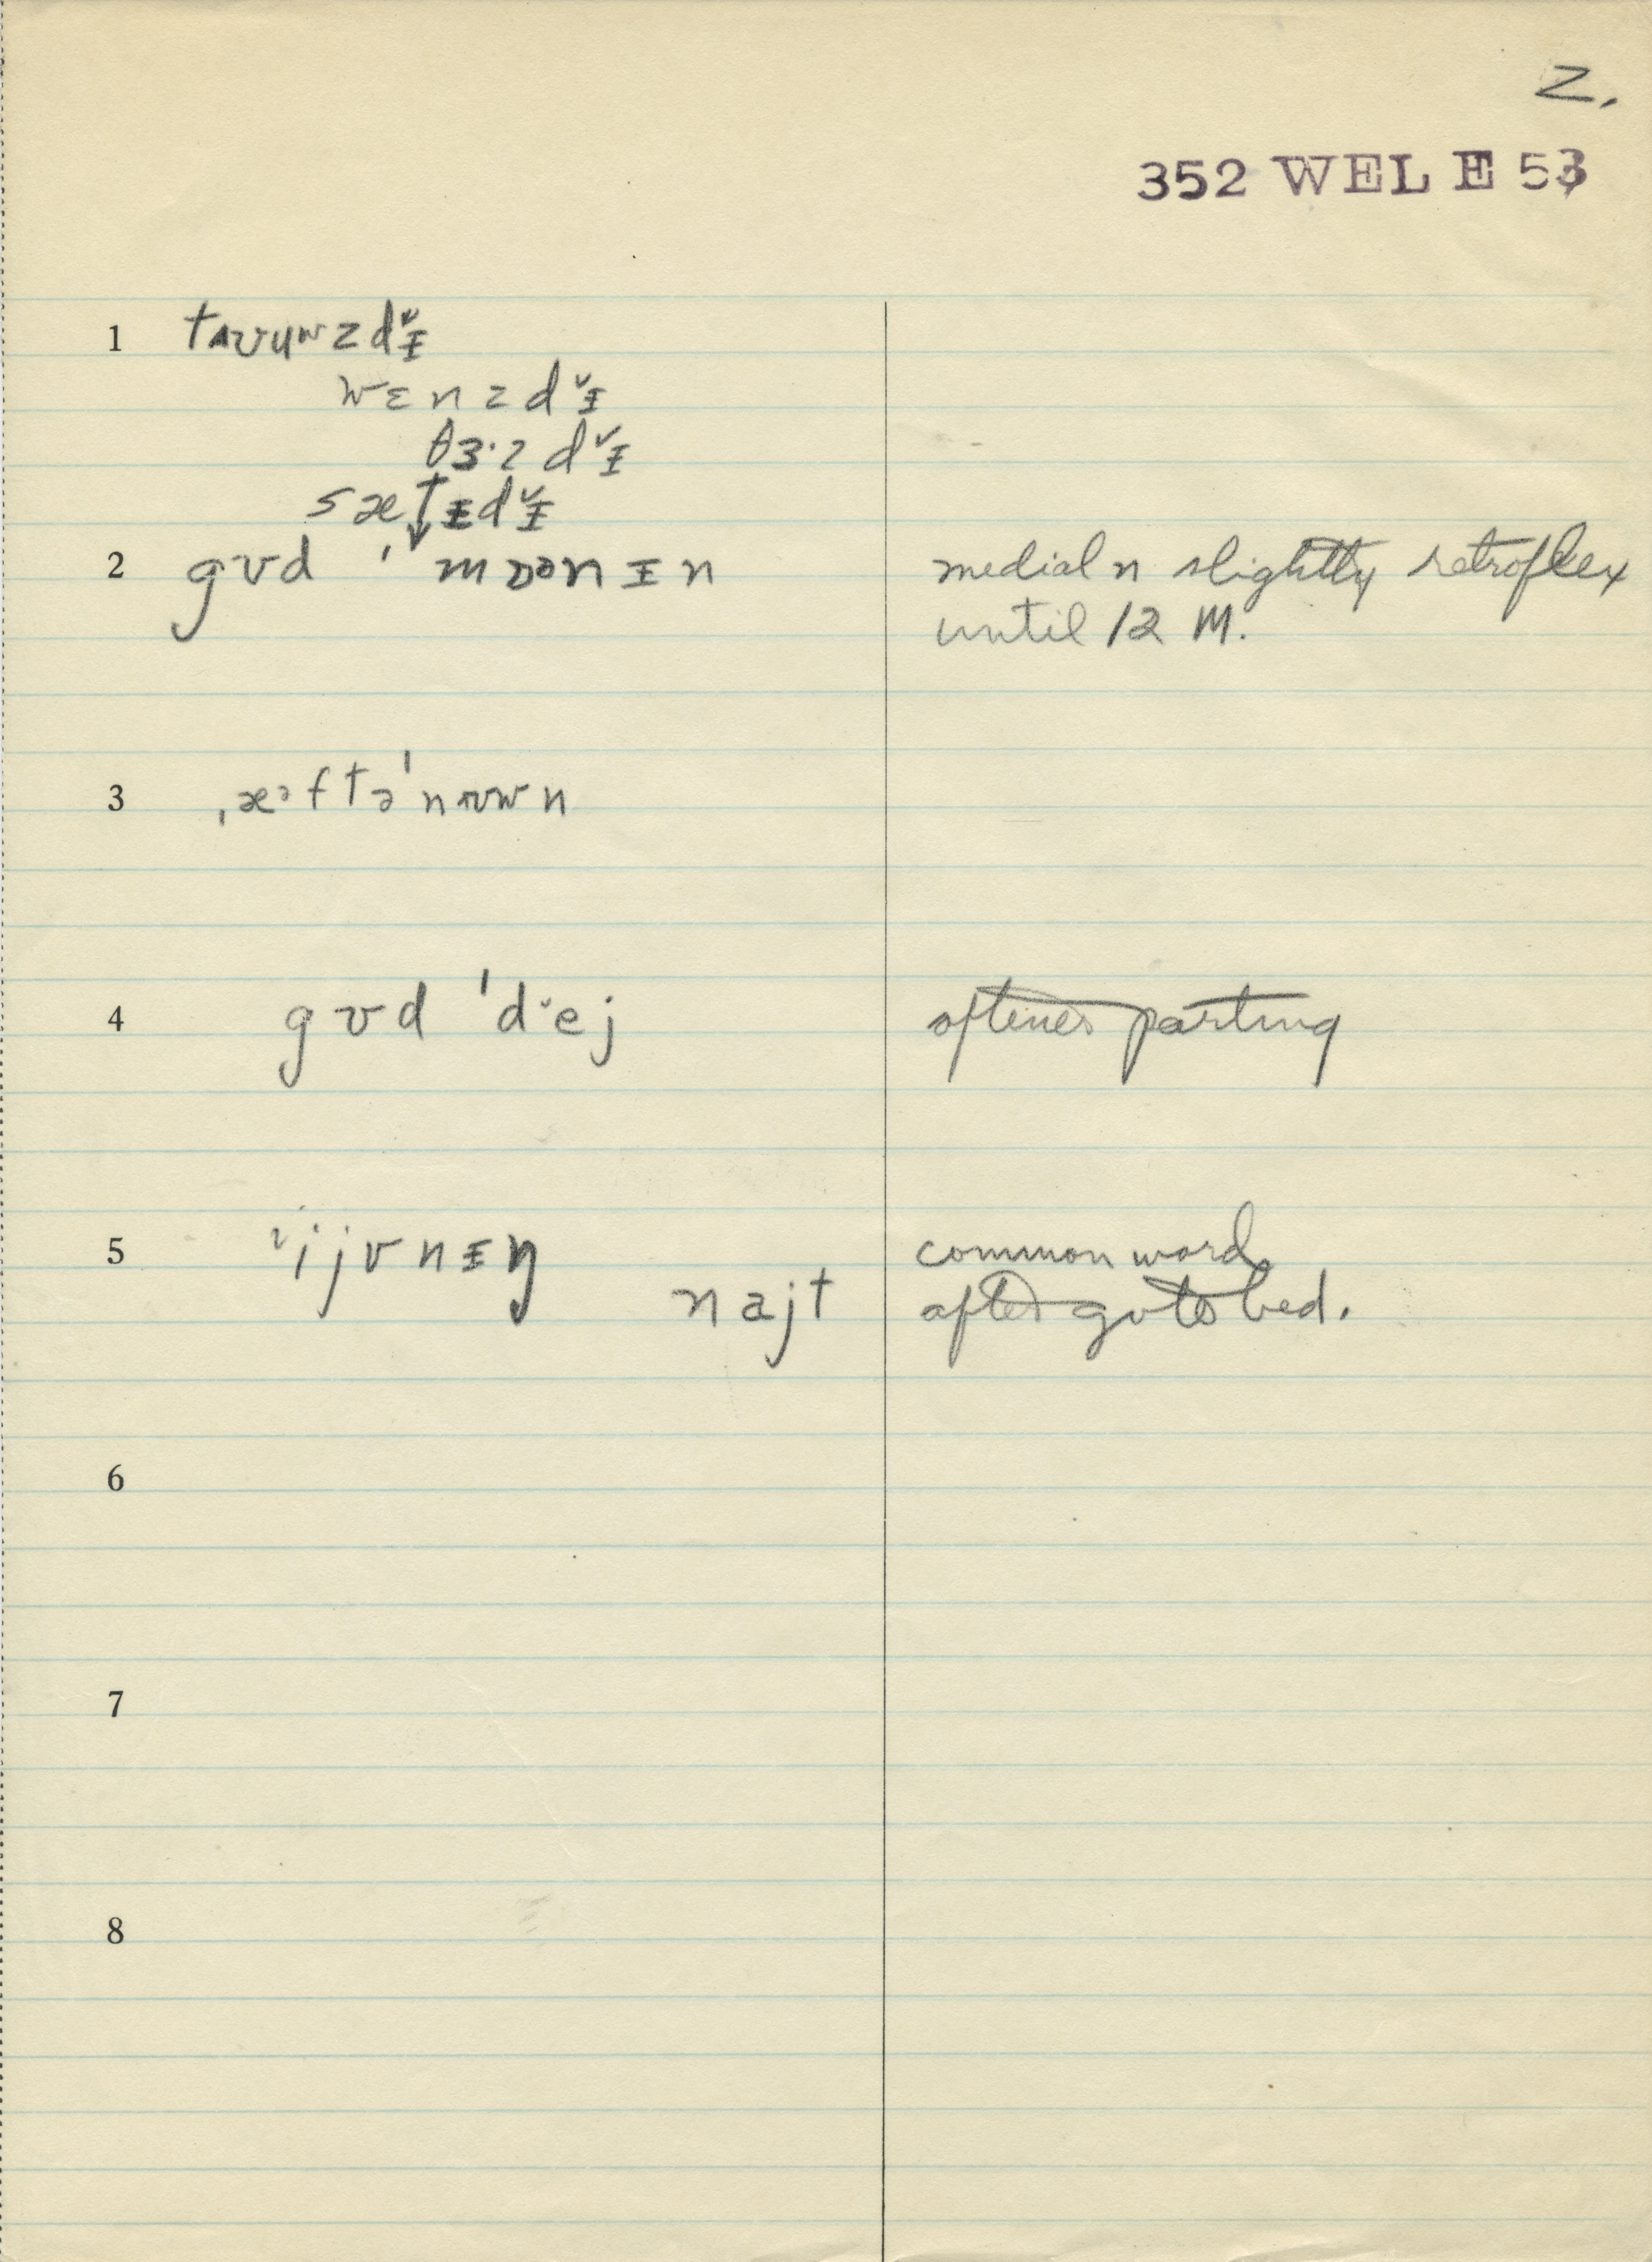 2.
352 WEL E 53
1 tʌuʉwzd˅ɪ
wɛnzd˅ɪ
θɜ·zd˅ɪ
sætɪd˅ɪ
2 gʊd ˈmɒᵊnɪn medial n slightly retroflex
until 12 M.
3 ˌæᵊftəˈnʊwn
4 gʊd ˈd˅ej oftener parting
5 ijvnɪŋ common word
najt after go to bed.
6
7
8